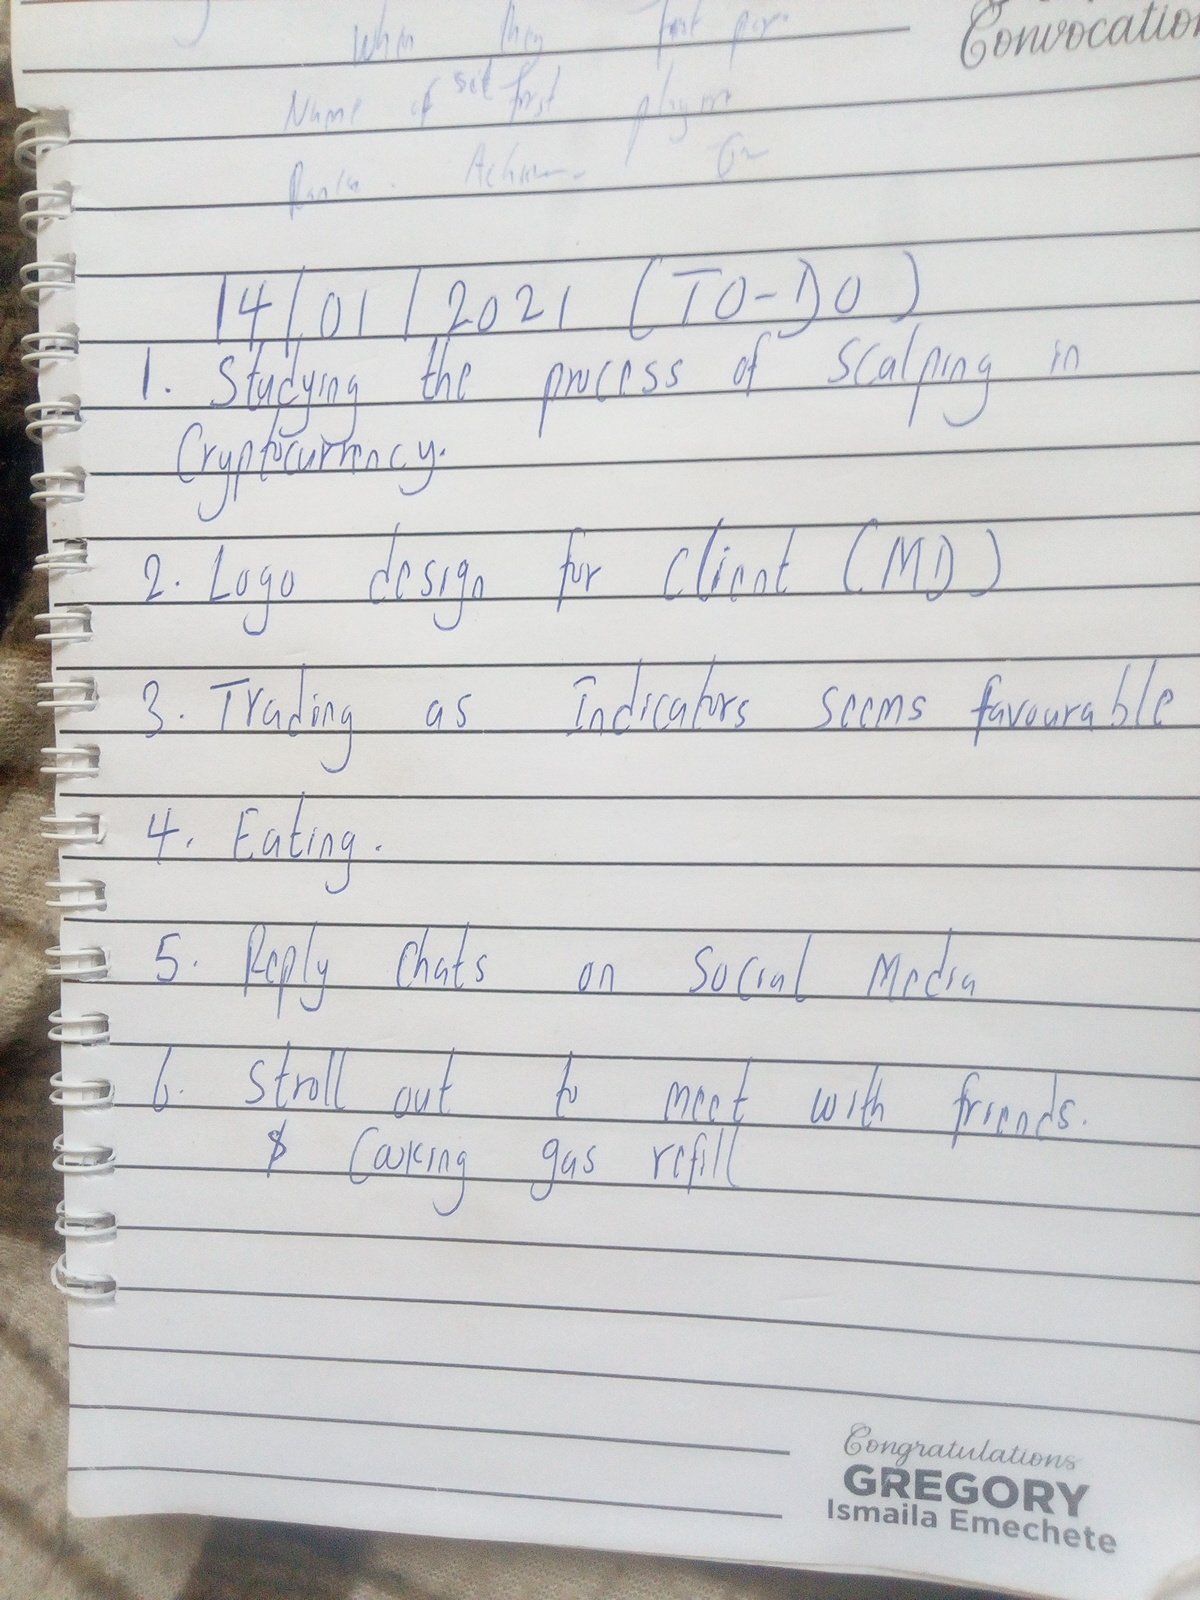 Convocation
When they
Name of set first
14/01/2021 (TO-DO)
1. Studying the process of scalping in
Cryptocurrency.
2. Logo design for client (MD)
3. Trading as Indicators seems favourable
4. Eating.
5. Reply chats on Social Media
6. Stroll out to meet with friends.
& Cooking gas refill
Congratulations
GREGORY
Ismaila Emechete